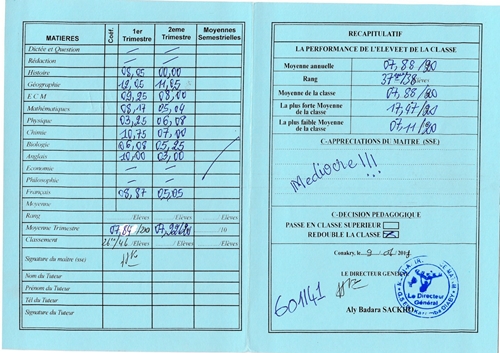 MATIERES Coéf. 1er Trimestre 2eme Trimestre Moyennes Semestrielles
Dictée et Question
Rédaction
Histoire 08,05 00,00
Géographie
E C M 09,25 08,00
Mathématiques 08,17 05,04
Physique 03,25 06,08
Chimie 10,75 07,80
Biologie 06,08 05,25
Anglais 10,00 03,00
Economie
Philosophie
Français 08,87 05,05
Moyenne
Rang /Elèves /Elèves /Elèves
Moyenne Trimestre 07,84/20 /10
Classement 26e/46 /Elèves /Elèves /Elèves
Signature du maître (sse)
Nom du Tuteur
Prénom du Tuteur
Tél du Tuteur
Signature du Tuteur
RECAPITULATIF
LA PERFORMANCE DE L'ELEVEET DE LA CLASSE
Moyenne annuelle 07,88/20
Rang 37ème/38 élèves
Moyenne de la classe 07,88/20
La plus forte Moyenne de la classe
La plus faible Moyenne de la classe 07,11/20
C-APPRECIATIONS DU MAITRE (SSE)
Mediocre!!!
C-DECISION PEDAGOGIQUE
PASSE EN CLASSE SUPERIEUR
REDOUBLE LA CLASSE
Conakry, le
LE DIRECTEUR GENERAL
601141
Le Directeur Général
Aly Badara SACKHO